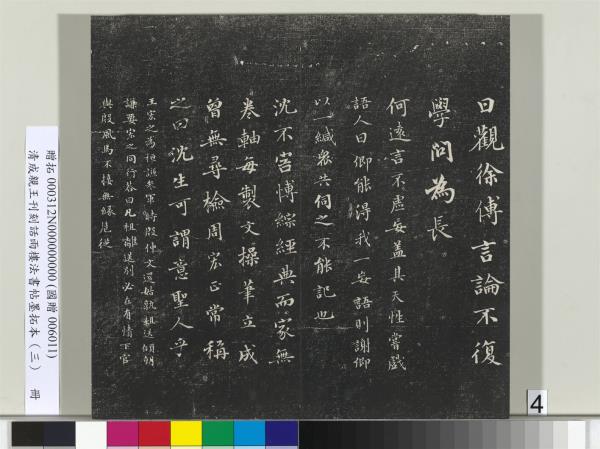 日觀徐傅言論不復
學問為長
何遠言不虛妄蓋其天性嘗戲
語人曰卿能得我一妄語則謝卿
以一縑衆共伺之不能記也
沈不害博綜經典而家無
卷軸每製文操筆立成
曾無尋檢周宏正常稱
之曰沈生可謂意聖人乎
王宏之為桓謙參軍時殷仲文還姑孰祖送傾朝
謙要宏之同行答曰凡祖離送別必在有情下官
與殷風馬不接無緣扈從
贈拓 000312N000000000 (國贈 006011)
清成親王刊刻詒雨樓法書帖墨拓本（三） 冊
4